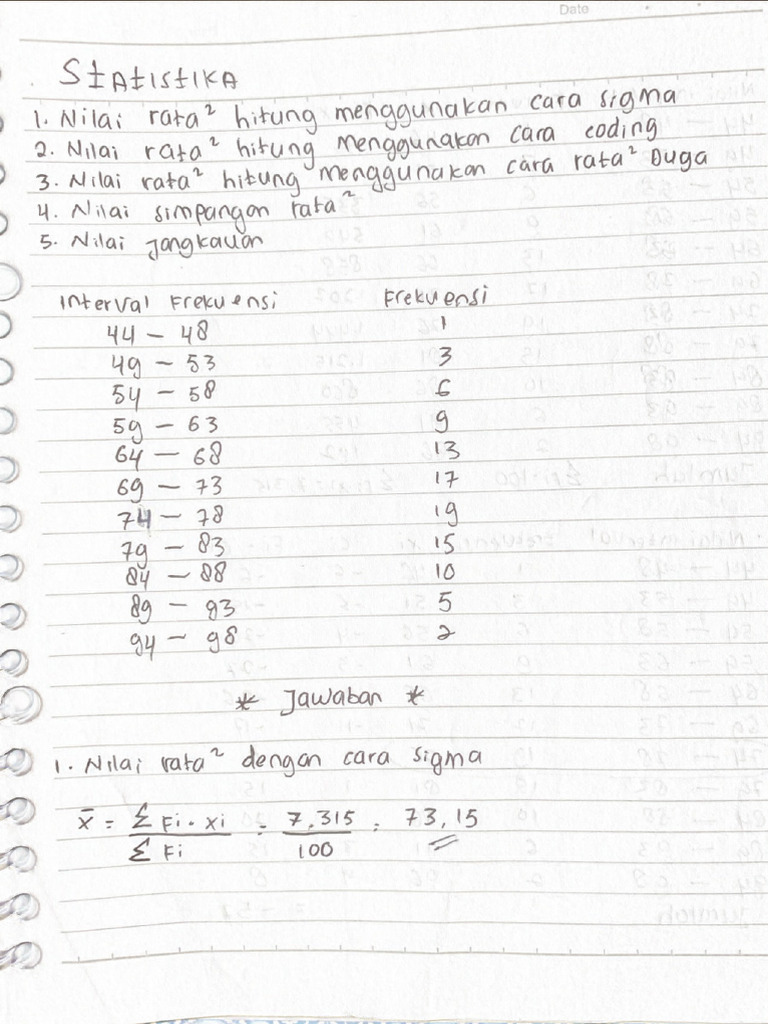 Date
StAtIStIKA
1. Nilai rata² hitung menggunakan cara sigma
2. Nilai rata² hitung menggunakan cara coding
3. Nilai rata² hitung menggunakan cara rata² Duga
4. Nilai simpangan rata²
5. Nilai Jangkauan
Interval Frekuensi Frekuensi
44 – 48 1
49 – 53 3
54 – 58 6
59 – 63 9
64 – 68 13
69 – 73 17
74 – 78 19
79 – 83 15
84 – 88 10
89 – 93 5
94 – 98 2
* Jawaban *
1. Nilai rata² dengan cara sigma
x̄ = Σ Fi · xi / Σ Fi = 7.315 / 100 = 73,15